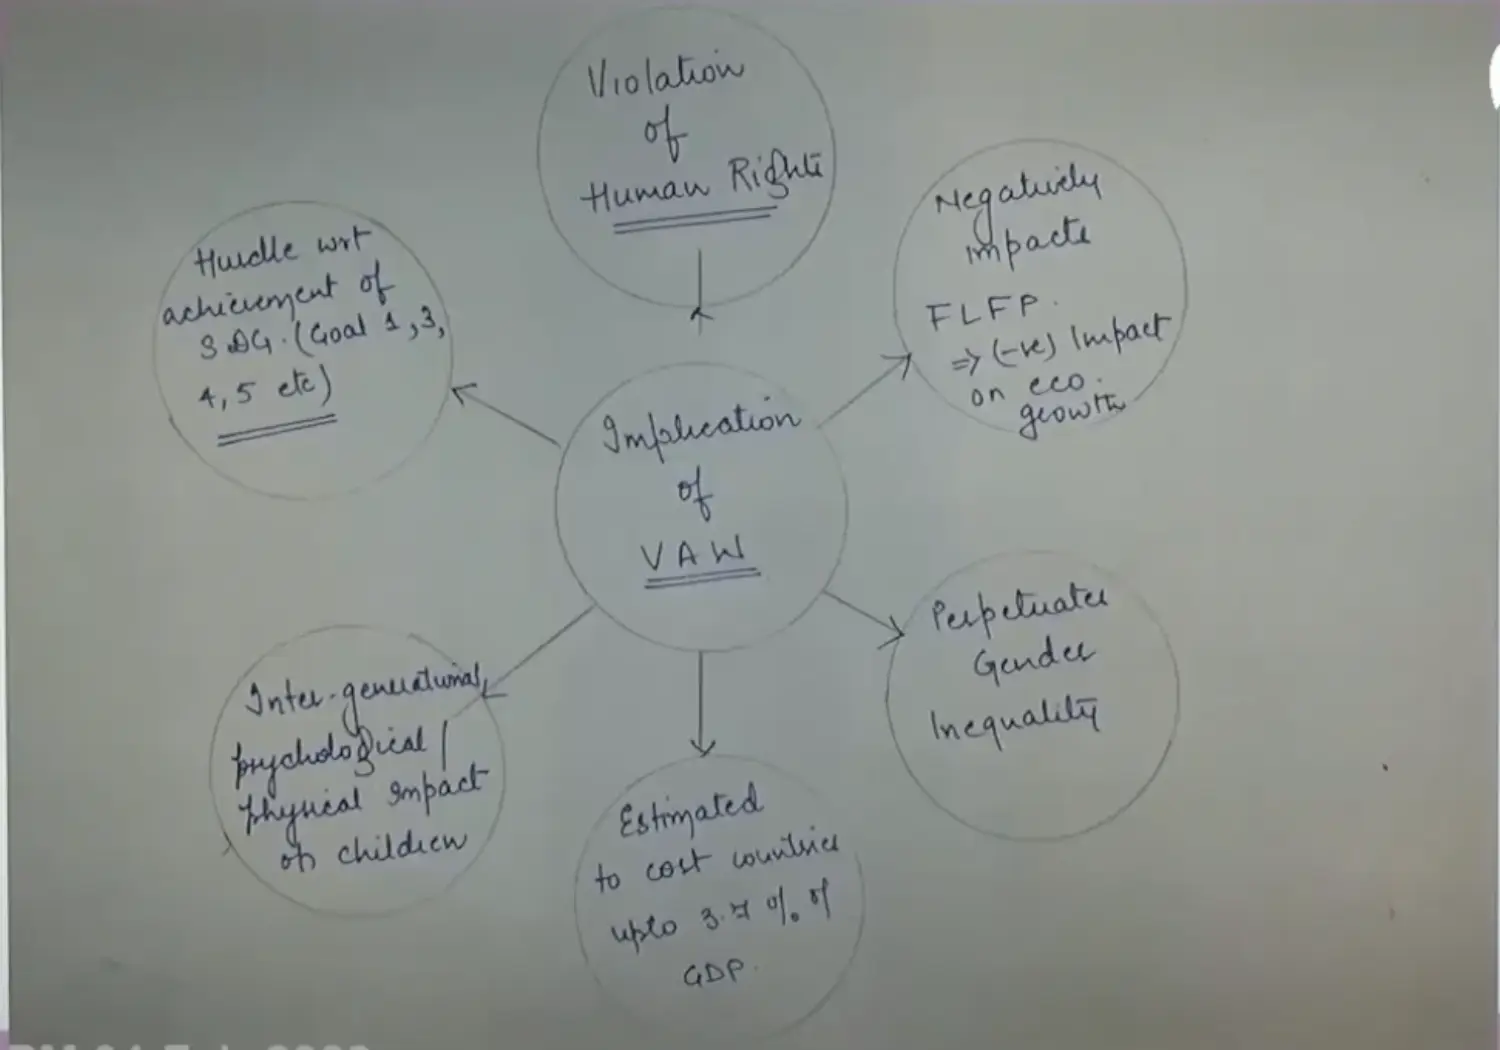 Violation
of
Human Rights
Negatively
impacts
FLFP.
⇒ (-ve) Impact
on eco.
growth
Hurdle wrt
achievement of
SDG. (Goal 1, 3,
4, 5 etc)
Implication
of
VAW
Perpetuates
Gender
Inequality
Inter-generational
psychological /
physical impact
on children
Estimated
to cost countries
upto 3.7 % of
GDP.